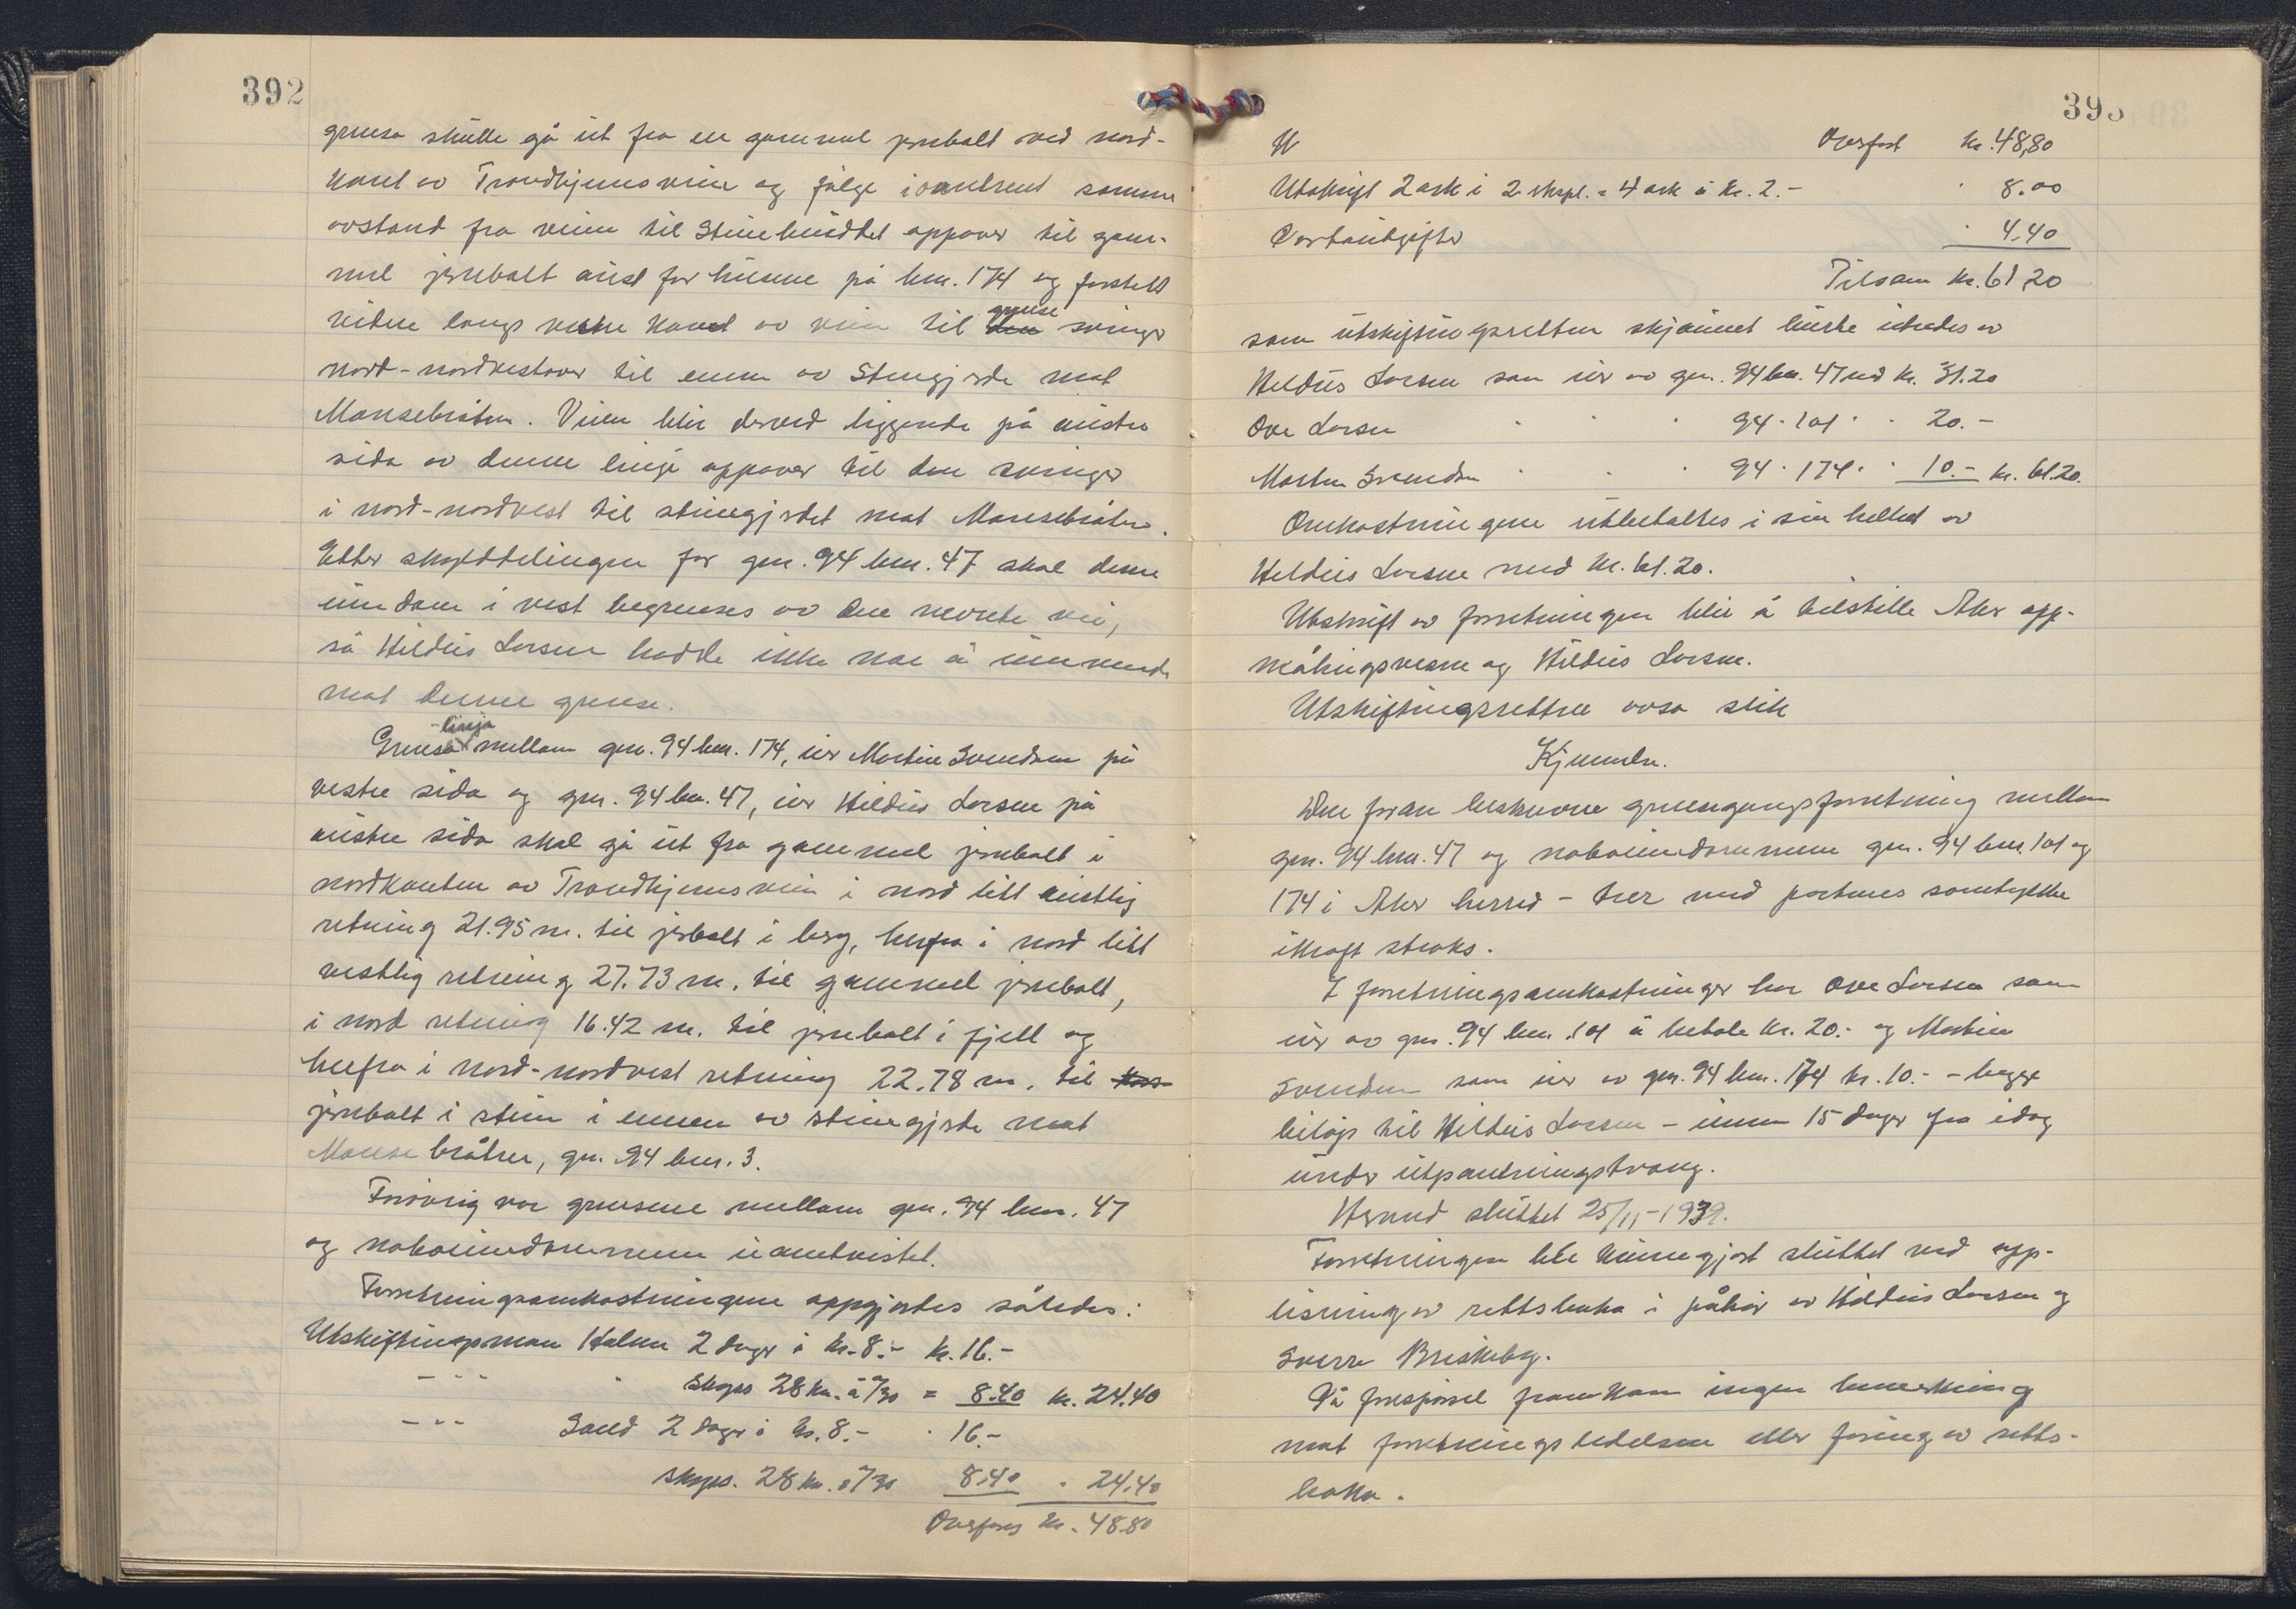 392
grensa skulle gå ut fra en gammel jernbolt ved nord-
kant av Trondhjemsveien og følge i omtrent samme
avstand fra veien til Steinbruddet oppover til gam-
mel jernbolt aust for husene på bnr. 174 og fortsett
videre langs vestre kant av veien til grense den svinger
nord-nordvestover til enden av Stengjerde mot
Mausebråten. Veien blir derved liggende på austre
sida av denne linje oppover til den svinger
i nord-nordvest til steinegjerdet mot Mausebråten.
Etter skylddelingen for gnr. 94 bnr. 47 skal denne
eiendom i vest begrenses av den nevnte vei,
så Hildus Larsen hadde ikke noe å innvende
mot denne grense.
-linja
Grensa mellom gnr. 94 bnr. 174, eier Martin Svendsen på
vestre sida og gnr. 94 bnr. 47, eier Hildus Larsen på
austre sida skal gå ut fra gammel jernbolt i
nordkanten av Trondhjemsveien i nord litt austlig
retning 21.95 m. til jerbolt i berg, herfra i nord litt
vestlig retning 27.73 m. til gammel jernbolt,
i nord retning 16.42 m. til jernbolt i fjell og
herfra i nord-nordvest retning 22.78 m. til
jernbolt i stein i enden av steinegjerde mot
Mausebråten, gnr. 94 bnr. 3.
Forøvrig var grensene mellom gnr. 94 bnr. 47
og naboeiendommene uomtvistet.
Forretningsomkostningene oppgjordes således:
Utskiftingsman Holm 2 dager à kr. 8.- kr. 16.-
- " - " Skyss 28 km. à 0/30 = 8.40 kr. 24.40
- " - Sand 2 dager à kr. 8.- " 16.-
Skyss. 28 km. à 0/30 8.40 " 24.40
Overføres kr. 48.80
393
U Overført kr. 48,80
Utskrift 2 ark i 2 ekspl. = 4 ark à kr. 2.- " 8.00
Portoutgifter " 4.40
Tilsam kr. 61,20
som utskiftingsretten skjønnet burde utredes av
Hildus Larsen som eier av gnr. 94 bnr. 47 med kr. 31.20
Ove Larsen " " " 94 " 101 " " 20.-
Martin Svendsen " " " 94 " 174 " " 10.- kr. 61.20.
Omkostningene utbetaltes i sin helhet av
Hildus Larsen med kr. 61.20.
Utskrift av forretningen blir å tilstille Aker opp-
målingsvesen og Hildus Larsen.
Utskiftingsretten avsa slik
Kjennelse.
Den foran beskrevne grensegangsforretning mellom
gnr. 94 bnr. 47 og naboeiendommene gnr. 94 bnr. 101 og
174 i Aker herred - trer med partenes samtykke
ikraft straks.
I forretningsomkostninger har Ove Larsen som
eier av gnr. 94 bnr. 101 å betale kr. 20.- og Martin
Svendsen som eier av gnr. 94 bnr. 174 kr. 10.- - begge
beløp til Hildus Larsen - innen 15 dager fra idag
under utpantningstvang.
Hermed sluttet 25/11-1939.
Forretningen ble kunngjort sluttet ved opp-
lesning av rettsboka i påhør av Hildus Larsen og
Sverre Briskeby.
På forespørsel framkom ingen bemerkning
mot forretningsledelsen eller føring av retts-
boka.